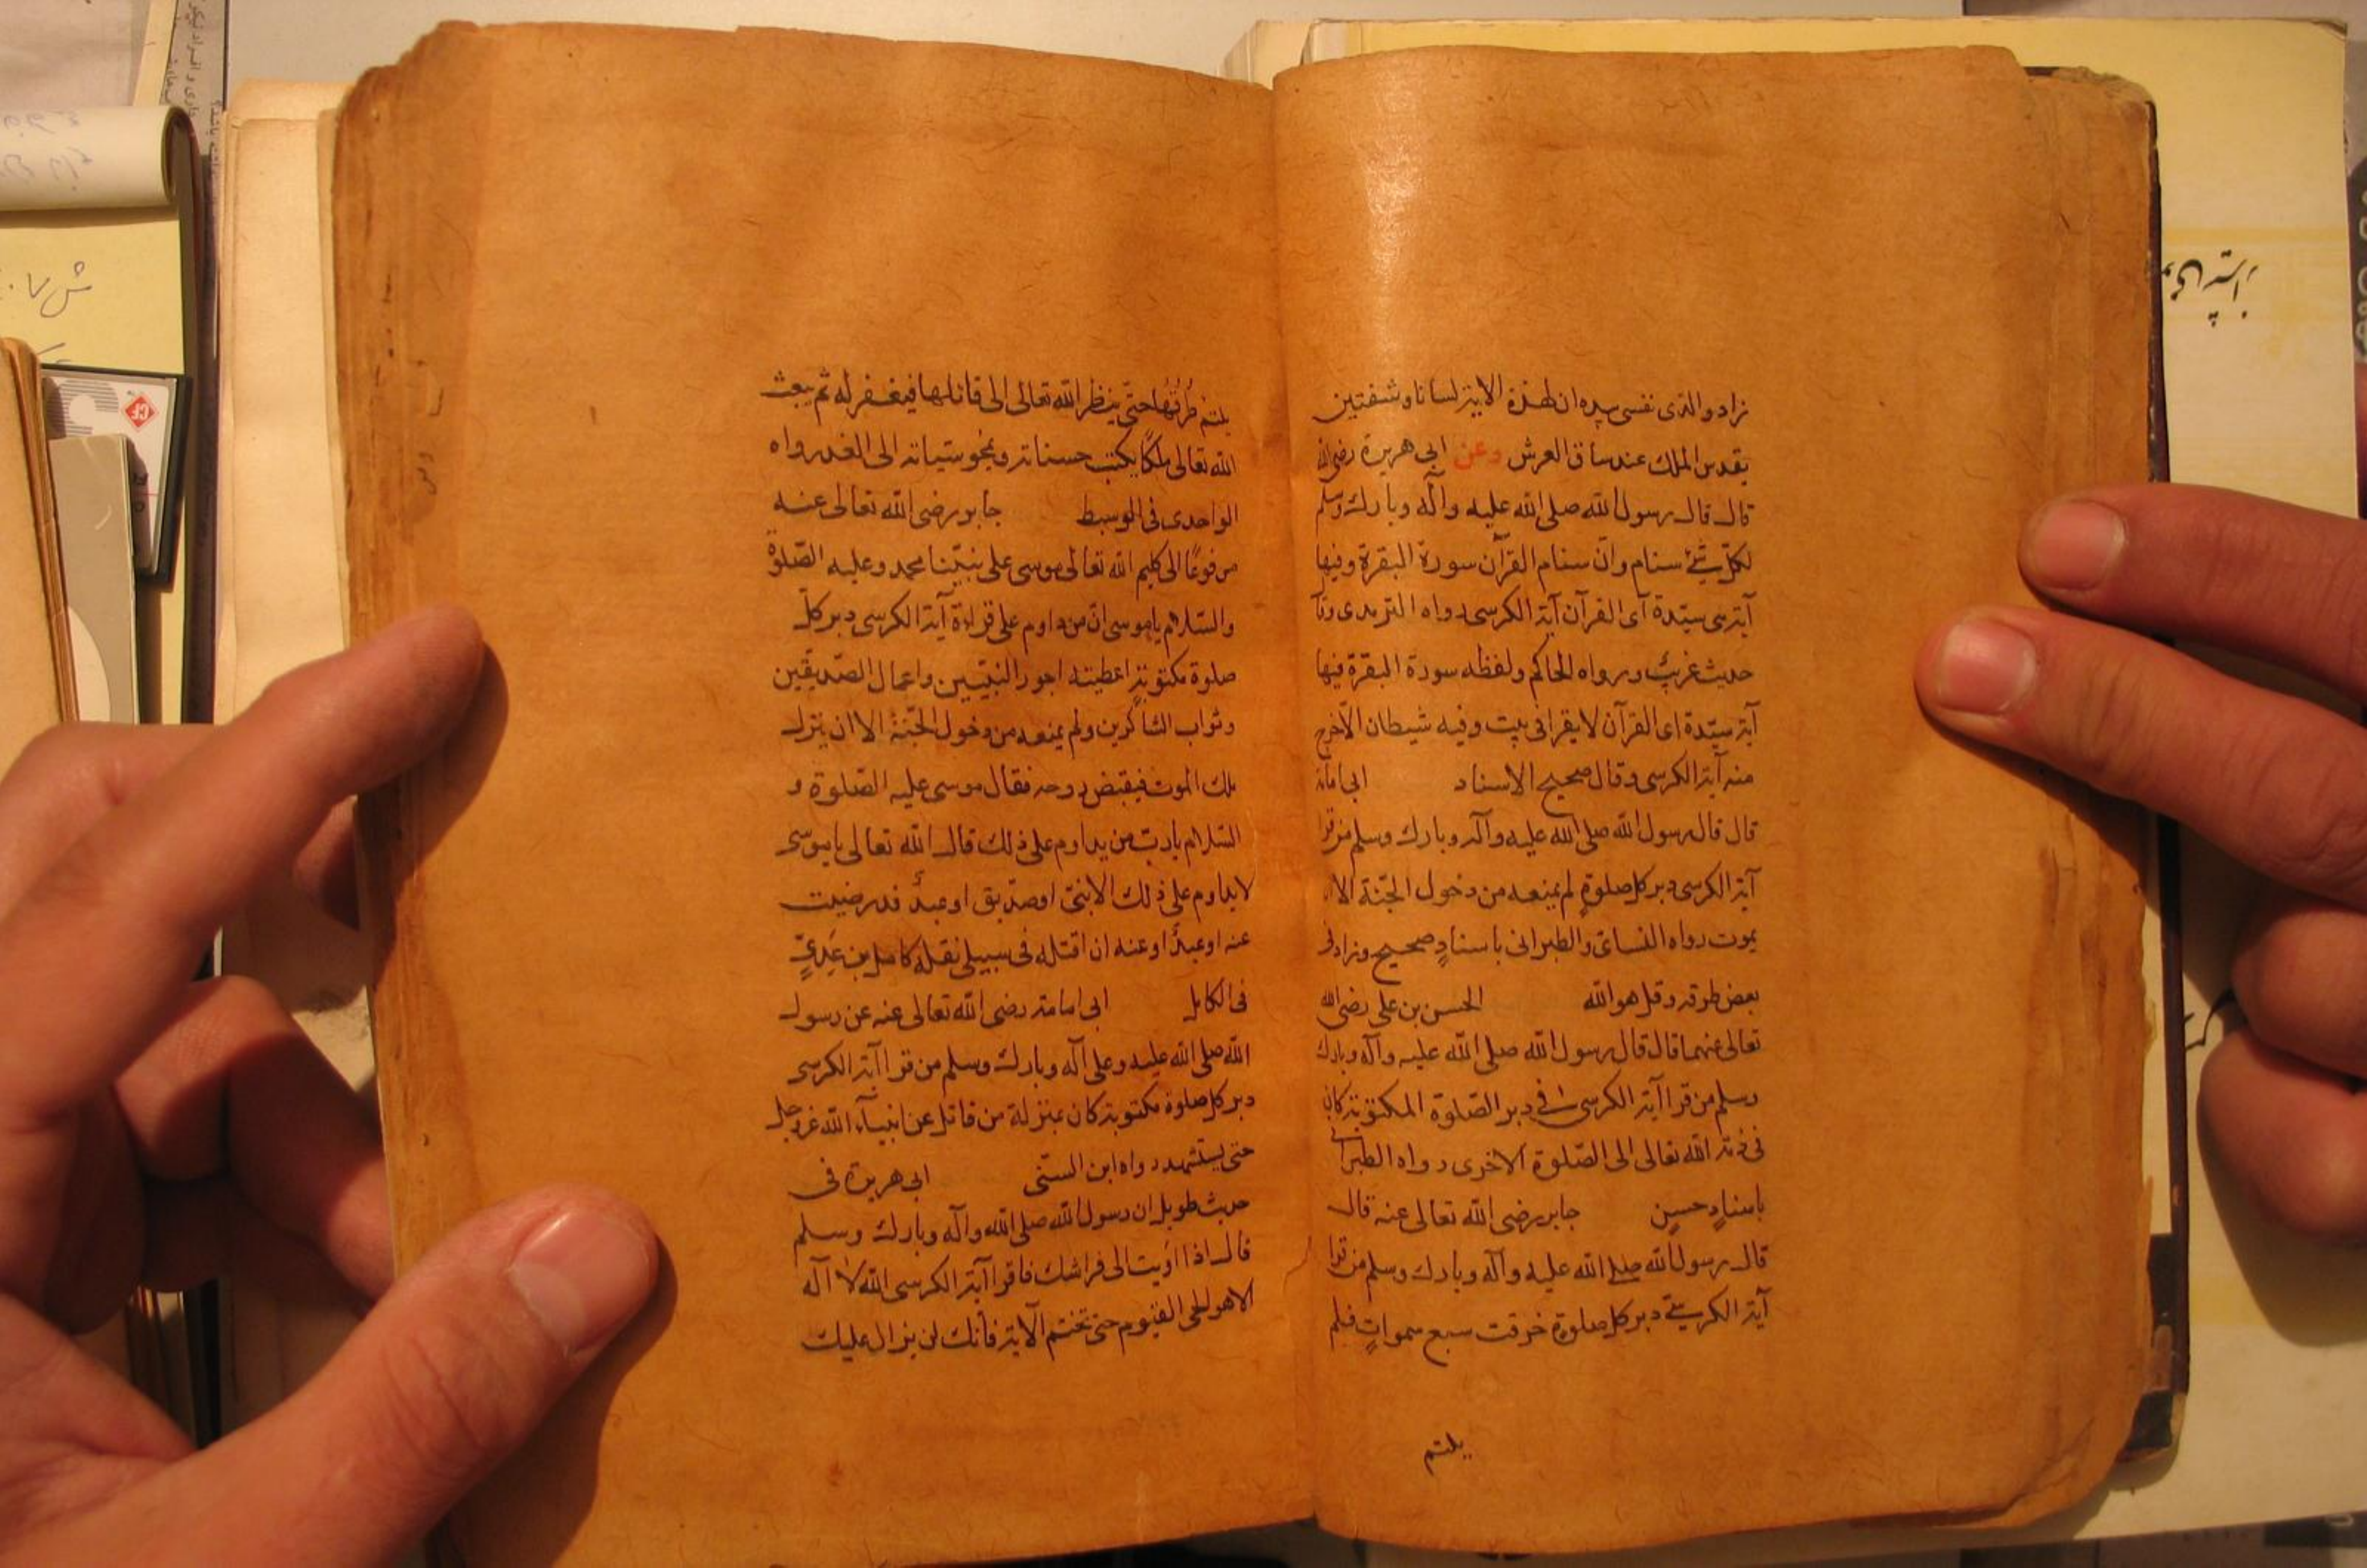 زاد والذی نفسی بیده ان لهذه الایة لسانا وشفتین
یقدس الملك عند ساق العرش وعن ابی هریرة رضی الله
قال قال رسول الله صلی الله علیه وآله وبارك وسلم
لكل شئ سنام وان سنام القرآن سورة البقرة وفیها
آیة هی سیّدة آی القرآن آیة الكرسی رواه الترمذی وقال
حدیث غریب ورواه الحاكم ولفظه سورة البقرة فیها
آیة سیّدة ای القرآن لا یقرا فی بیت وفیه شیطان الّا خرج
منه آیة الكرسی وقال صحیح الاسناد ابی امامة
قال قال رسول الله صلی الله علیه وآله وبارك وسلم من قرا
آیة الكرسی دبر كل صلوة لم یمنعه من دخول الجنّة الا ان
یموت رواه النسائی والطبرانی باسنادٍ صحیح وزاد فی
بعض طرقه وقل هو الله الحسن بن علی رضی الله
تعالی عنهما قال قال رسول الله صلی الله علیه وآله وبارك
وسلم من قرا آیة الكرسی فی دبر الصّلوة المكتوبة كان
فی ذمّة الله تعالی الی الصّلوة الاخری رواه الطبرانی
باسنادٍ حسنٍ جابر رضی الله تعالی عنه قال
قال رسول الله صلی الله علیه وآله وبارك وسلم من قرا
آیة الكرسی دبر كل صلوة خرقت سبع سمواتٍ فلم
یلتئم
یلتئم خُرُقُهَا حتّی ینظر الله تعالی الی قائلها فیغفر له ثم یبعث
الله تعالی ملكًا یكتب حسناته ویمحو سیئاته الی الغد رواه
الواحدی فی الوسیط جابر رضی الله تعالی عنه
مرفوعًا الی كلیم الله تعالی موسی علی نبیّنا محمد وعلیه الصّلوة
والسّلام یا موسی انّ من داوم علی قراءة آیة الكرسی دبر كل
صلوة مكتوبةٍ اعطیته اجور النبیّین واعمال الصّدیقین
وثواب الشاكرین ولم یمنعه من دخول الجنّة الا ان ینزل
ملك الموت فیقبض روحه فقال موسی علیه الصّلوة و
السّلام یا ربّ من یداوم علی ذلك قال الله تعالی یا موسی
لا یداوم علی ذلك الا نبیّ او صدّیق او عبدٌ قد رضیت
عنه او عبدًا اوعنه ان اقتله فی سبیلی نقله كامل بن عَدِیٍّ
فی الكامل ابی امامة رضی الله تعالی عنه عن رسول
الله صلی الله علیه وعلی آله وبارك وسلم من قرا آیة الكرسی
دبر كل صلوة مكتوبة كان بمنزلة من قاتل عن انبیآء الله عز وجل
حتی یستشهد رواه ابن السنّی ابی هریرة فی
حدیث طویل ان رسول الله صلی الله وآله وبارك وسلم
قال اذا اویت الی فراشك فاقرا آیة الكرسی الله لا آله
الا هو الحی القیّوم حتی تختم الآیة فانك لن یزال علیك